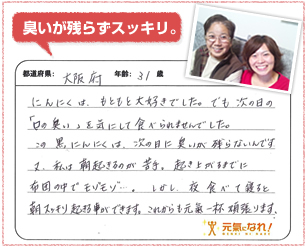 臭いが残らずスッキリ。
都道府県: 大阪府 年齢: 31 歳
にんにくは、もともと大好きでした。でも次の日の
「口の臭い」を気にして食べられませんでした。
この黒にんにくは、次の日に臭いが残らないんです
又、私は朝起きるのが苦手。起き上がるまでに
布団の中でモゾモゾ…。しかし、夜食べて寝ると
朝スッキリ起きる事ができます。これからも元氣一杯頑張ります。
元氣になれ!